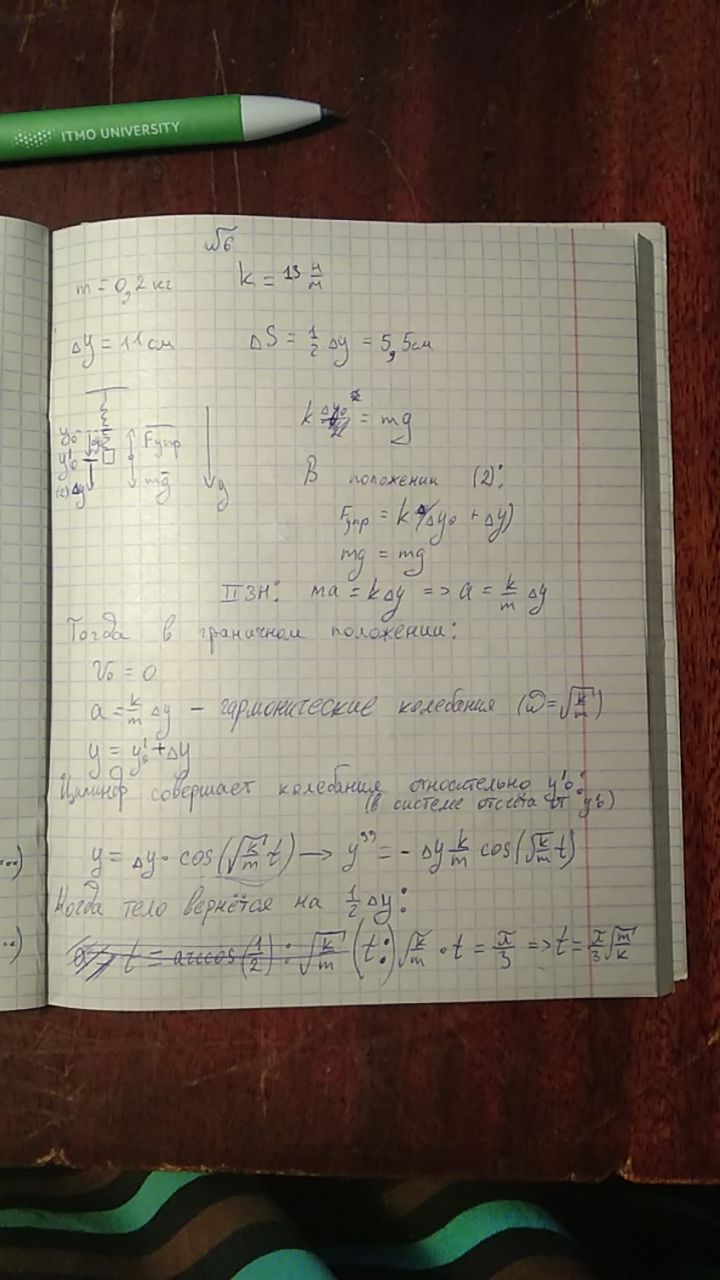 ITMO UNIVERSITY
№6
m = 0,2 кг k = 13 Н/м
Δy = 11 см ΔS = 1/2 Δy = 5,5 см
k Δy₀ = mg
y₀ F̅упр
y₀'
(2) Δy mg̅ y
В положении (2):
Fупр = k (Δy₀ + Δy)
mg = mg
II ЗН: ma = kΔy => a = k/m Δy
Тогда в граничном положении:
V₀ = 0
a = k/m Δy – гармонические колебания (ω = √(k/m))
y = y₀' + Δy
Цилиндр совершает колебания относительно y₀':
(в системе отсчёта от y₀')
y = Δy · cos(√(k/m) t) → y'' = - Δy k/m cos(√(k/m) t)
Когда тело вернётся на 1/2 Δy:
t = arccos(1/2) : √(k/m) (t:) √(k/m) · t = π/3 => t = π/3 √(m/k)